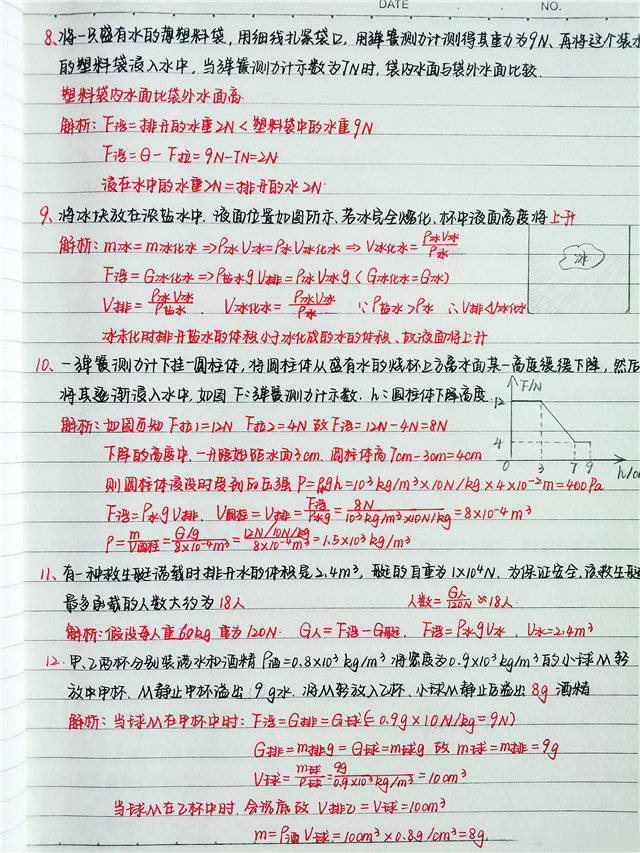 DATE NO.
8、将一只盛有水的薄塑料袋,用细线扎紧袋口,用弹簧测力计测得其重力为9N、再将这个装水
的塑料袋浸入水中,当弹簧测力计示数为7N时,袋内水面与袋外水面比较.
塑料袋内水面比袋外水面高
解析:F浮=排开的水重2N<塑料袋中的水重9N
F浮=G-F拉=9N-7N=2N
浸在水中的水重2N=排开的水2N
9、将冰块放在浓盐水中.液面位置如图所示.若冰完全熔化、杯中液面高度将上升
解析:m冰=m冰化水⇒ρ冰V冰=ρ水V冰化水⇒V冰化水=ρ冰V冰/ρ水
冰
F浮=G冰化水⇒ρ盐水gV排=ρ冰V冰g(G冰化水=G冰)
V排=ρ冰V冰/ρ盐水、V冰化水=ρ冰V冰/ρ水 ∵ρ盐水>ρ水 ∴V排<V冰化水
冰未化时排开盐水的体积小于冰化成的水的体积、故液面将上升
10、一弹簧测力计下挂一圆柱体,将圆柱体从盛有水的烧杯上方离水面某一高度缓缓下降,然后
将其逐渐浸入水中,如图F:弹簧测力计示数.h:圆柱体下降高度
F/N
12
4
0 3 7 9 h/cm
解析:如图可知F拉1=12N F拉2=4N 故F浮=12N-4N=8N
下降的高度中,一开始距水面3cm.圆柱体高7cm-3cm=4cm
则圆柱体浸没时受到的压强P=ρgh=10³kg/m³×10N/kg×4×10⁻²m=400Pa
F浮=ρ水gV排、V圆柱=V排=F浮/ρ水g=8N/10³kg/m³×10N/kg=8×10⁻⁴m³
ρ=m/V圆柱=G/g/8×10⁻⁴m³=12N/10N/kg/8×10⁻⁴m³=1.5×10³kg/m³
11、有一种救生艇满载时排开水的体积是2.4m³,艇的自重为1×10⁴N、为保证安全,该救生艇
最多承载的人数大约为18人 人数=G人/120N≈18人
解析:假设每人重60kg 重为120N. G人=F浮-G艇、F浮=ρ水gV水、V水=2.4m³
12.甲、乙两杯分别装满水和酒精ρ酒=0.8×10³kg/m³将密度为0.9×10³kg/m³的小球M轻
放中甲杯、M静止甲杯溢出9g水.将M轻放入乙杯、小球M静止后溢出8g酒精
解析:当球M在甲杯中时:F浮=G排=G球(=0.9g×10N/kg=9N)
G排=m排g=G球=m球g 故m球=m排=9g
V球=m球/ρ球=9g/0.9×10³kg/m³=10cm³
当球M在乙杯中时.会沉底故V排乙=V球=10cm³
m=ρ酒V球=10cm³×0.8g/cm³=8g.